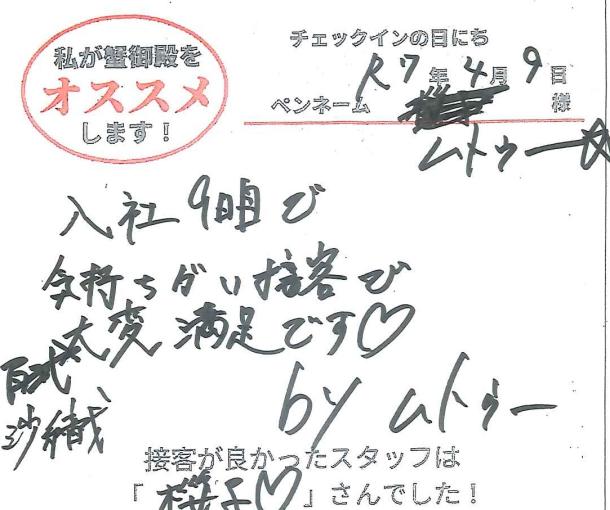 私が蟹御殿を
オススメ
します!
チェックインの日にち
R7年4月9日
ペンネーム 様
ムトゥー☆
入社9日目で
気持ちがいい接客で
大変満足です♡
by ムトゥー
沙織
接客が良かったスタッフは
「桜子♡」さんでした!